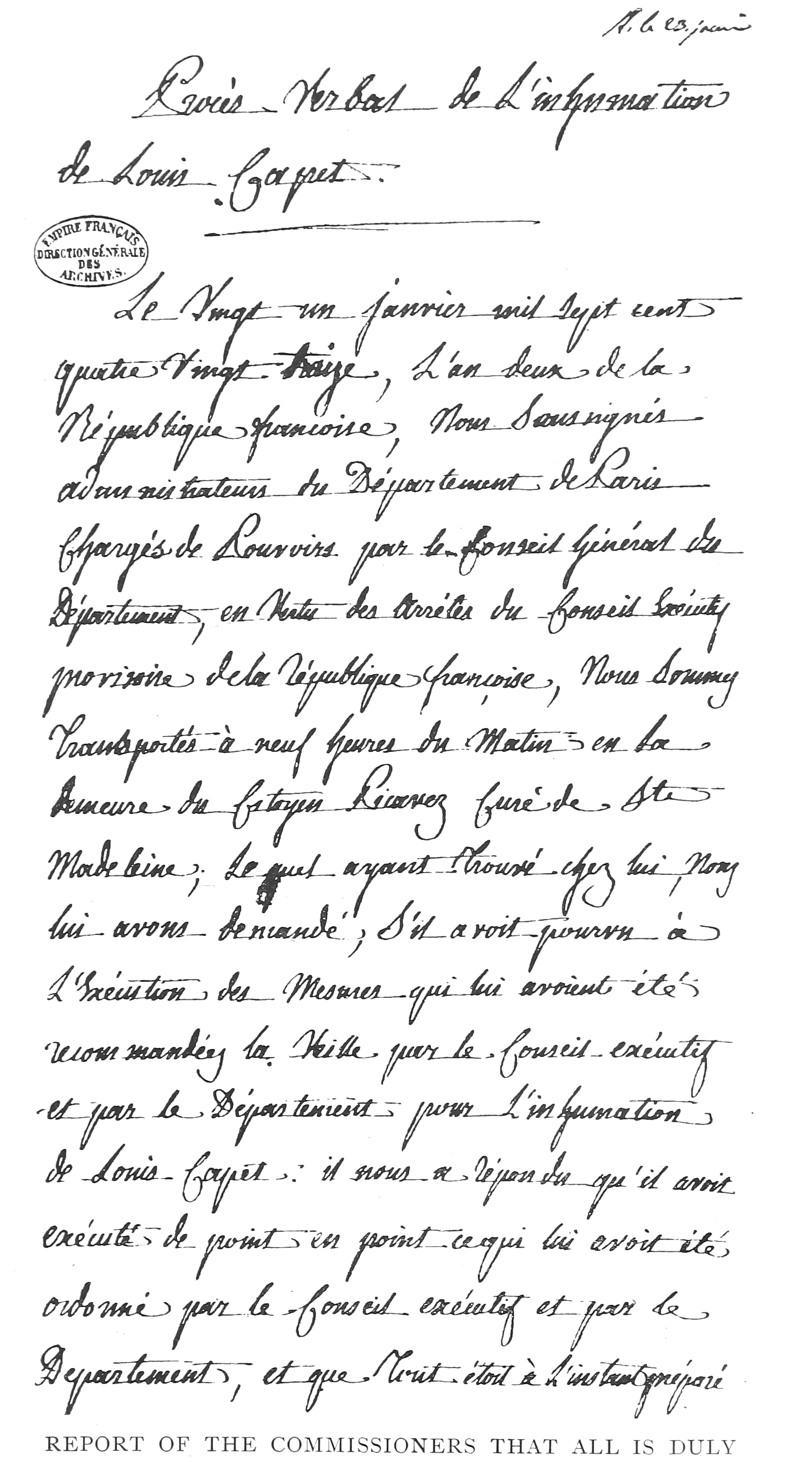 le 23. janvier
Procès Verbal de L'inhumation
de Louis Capet.
EMPIRE FRANÇAIS
DIRECTION GÉNÉRALE
DES
ARCHIVES.
Le Vingt un janvier mil sept cent
quatre Vingt treize, L'an deux de la
République françoise, Nous Soussignés
administrateurs du Département de Paris
Chargés de Pouvoirs par le Conseil Général du
Département, en Vertu des Arrêtés du Conseil Exécutif
provisoire de la République françoise, Nous Sommes
Transportés à neuf heures du Matin en la
demeure du Citoyen Picavez Curé de Ste
Madeleine; Lequel ayant Trouvé chez lui, Nous
lui avons demandé, S'il avoit pourvu à
L'Exécution des Mesures qui lui avoient été
recommandées la Veille par le Conseil exécutif
et par le Département pour L'inhumation
de Louis Capet: il nous a répondu qu'il avoit
exécuté de point en point ce qui lui avoit été
ordonné par le Conseil exécutif et par le
Departement, et que Tout étoit à L'instant préparé
REPORT OF THE COMMISSIONERS THAT ALL IS DULY